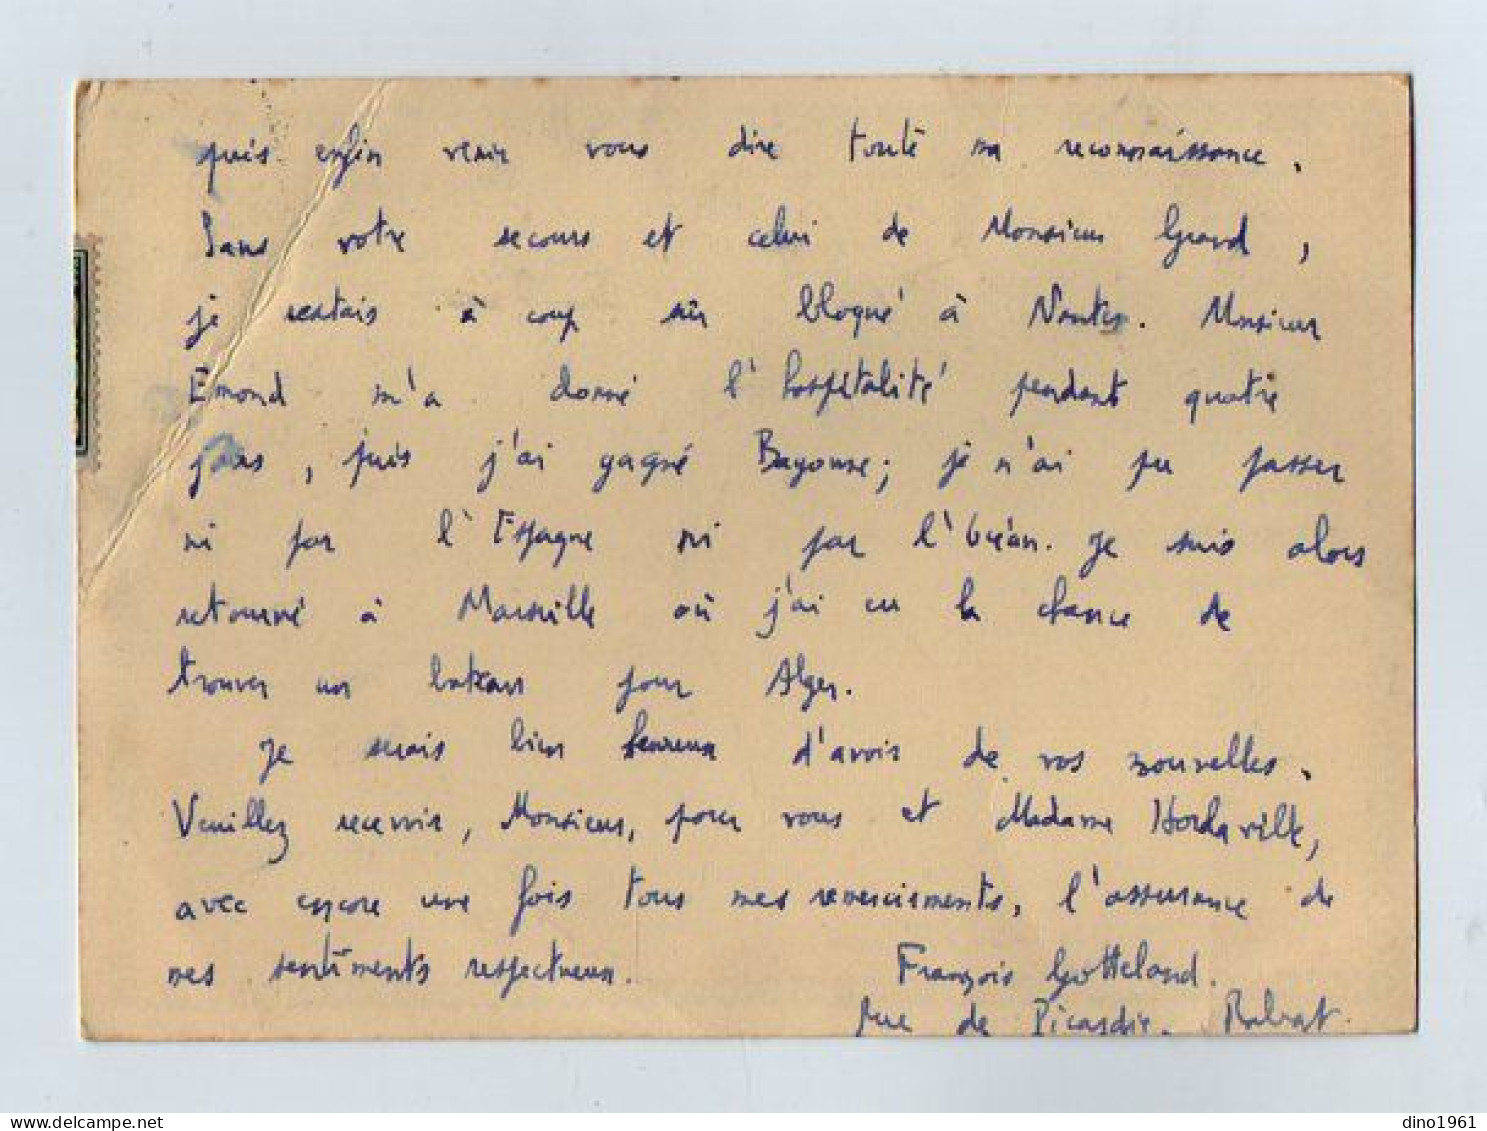 puis enfin venir vous dire toute ma reconnaissance.
Sans votre secours et celui de Monsieur Grand,
je restais à coup sûr bloqué à Nantes. Monsieur
Emond m'a donné l'hospitalité pendant quatre
jours, puis j'ai gagné Bayonne; je n'ai pu passer
ni par l'Espagne ni par l'Océan. Je suis alors
retourné à Marseille où j'ai eu la chance de
trouver un bateau pour Alger.
Je serais bien heureux d'avoir de vos nouvelles.
Veuillez recevoir, Monsieur, pour vous et Madame Hordaville,
avec encore une fois tous mes remerciements, l'assurance de
mes sentiments respectueux. François Gotteland.
rue de Picardie. Rabat.
dino1961